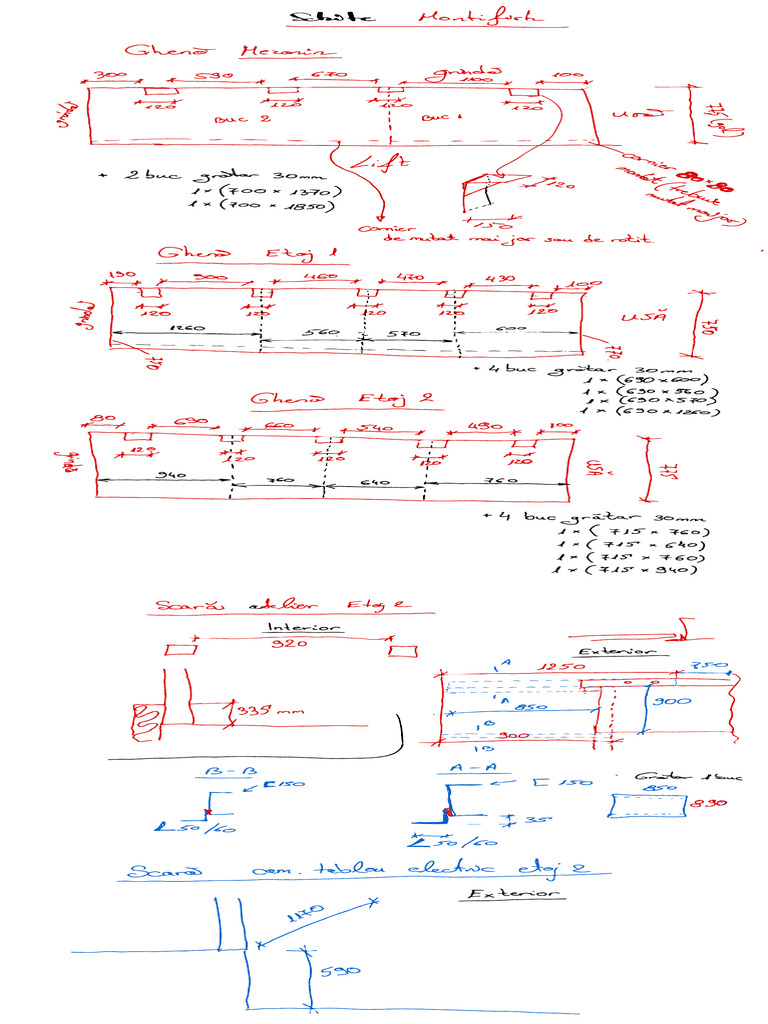 Schite Montifurk
Ghenă Mezanin
300 590 670 grindă 1100 100
grindă 120 120 120 120 ușă 775(gol)
Buc 2 Buc 1
Lift
+ 2 buc grătar 30mm
1 × (700 × 1370)
1 × (700 × 1850)
120
150
cornier 80×80
montat (trebuie
mutat mai jos)
cornier
de mutat mai jos sau de rotit.
Ghenă Etaj 1
190 900 460 470 430 100
grindă 120 120 120 120 120 UȘĂ 750
1260 560 570 600
770 770
+ 4 buc grătar 30mm
1 × (690 × 600)
1 × (690 × 560)
1 × (690 × 570)
1 × (690 × 1260)
Ghenă Etaj 2
80 690 660 540 490 100
grindă 120 120 120 120 120 UȘĂ 775
940 760 640 760
+ 4 buc grătar 30mm
1 × (715 × 760)
1 × (715 × 640)
1 × (715 × 760)
1 × (715 × 940)
Scară atelier Etaj 2
Interior
920
335 mm
Exterior
A 1250 750
A
850 900
B
900
B
B - B
[ 150
L 50/60
A - A
[ 150
35
L 50/60
Grătar 1 buc
850
890
Scară cam. tablou electric etaj 2
Exterior
1170
590